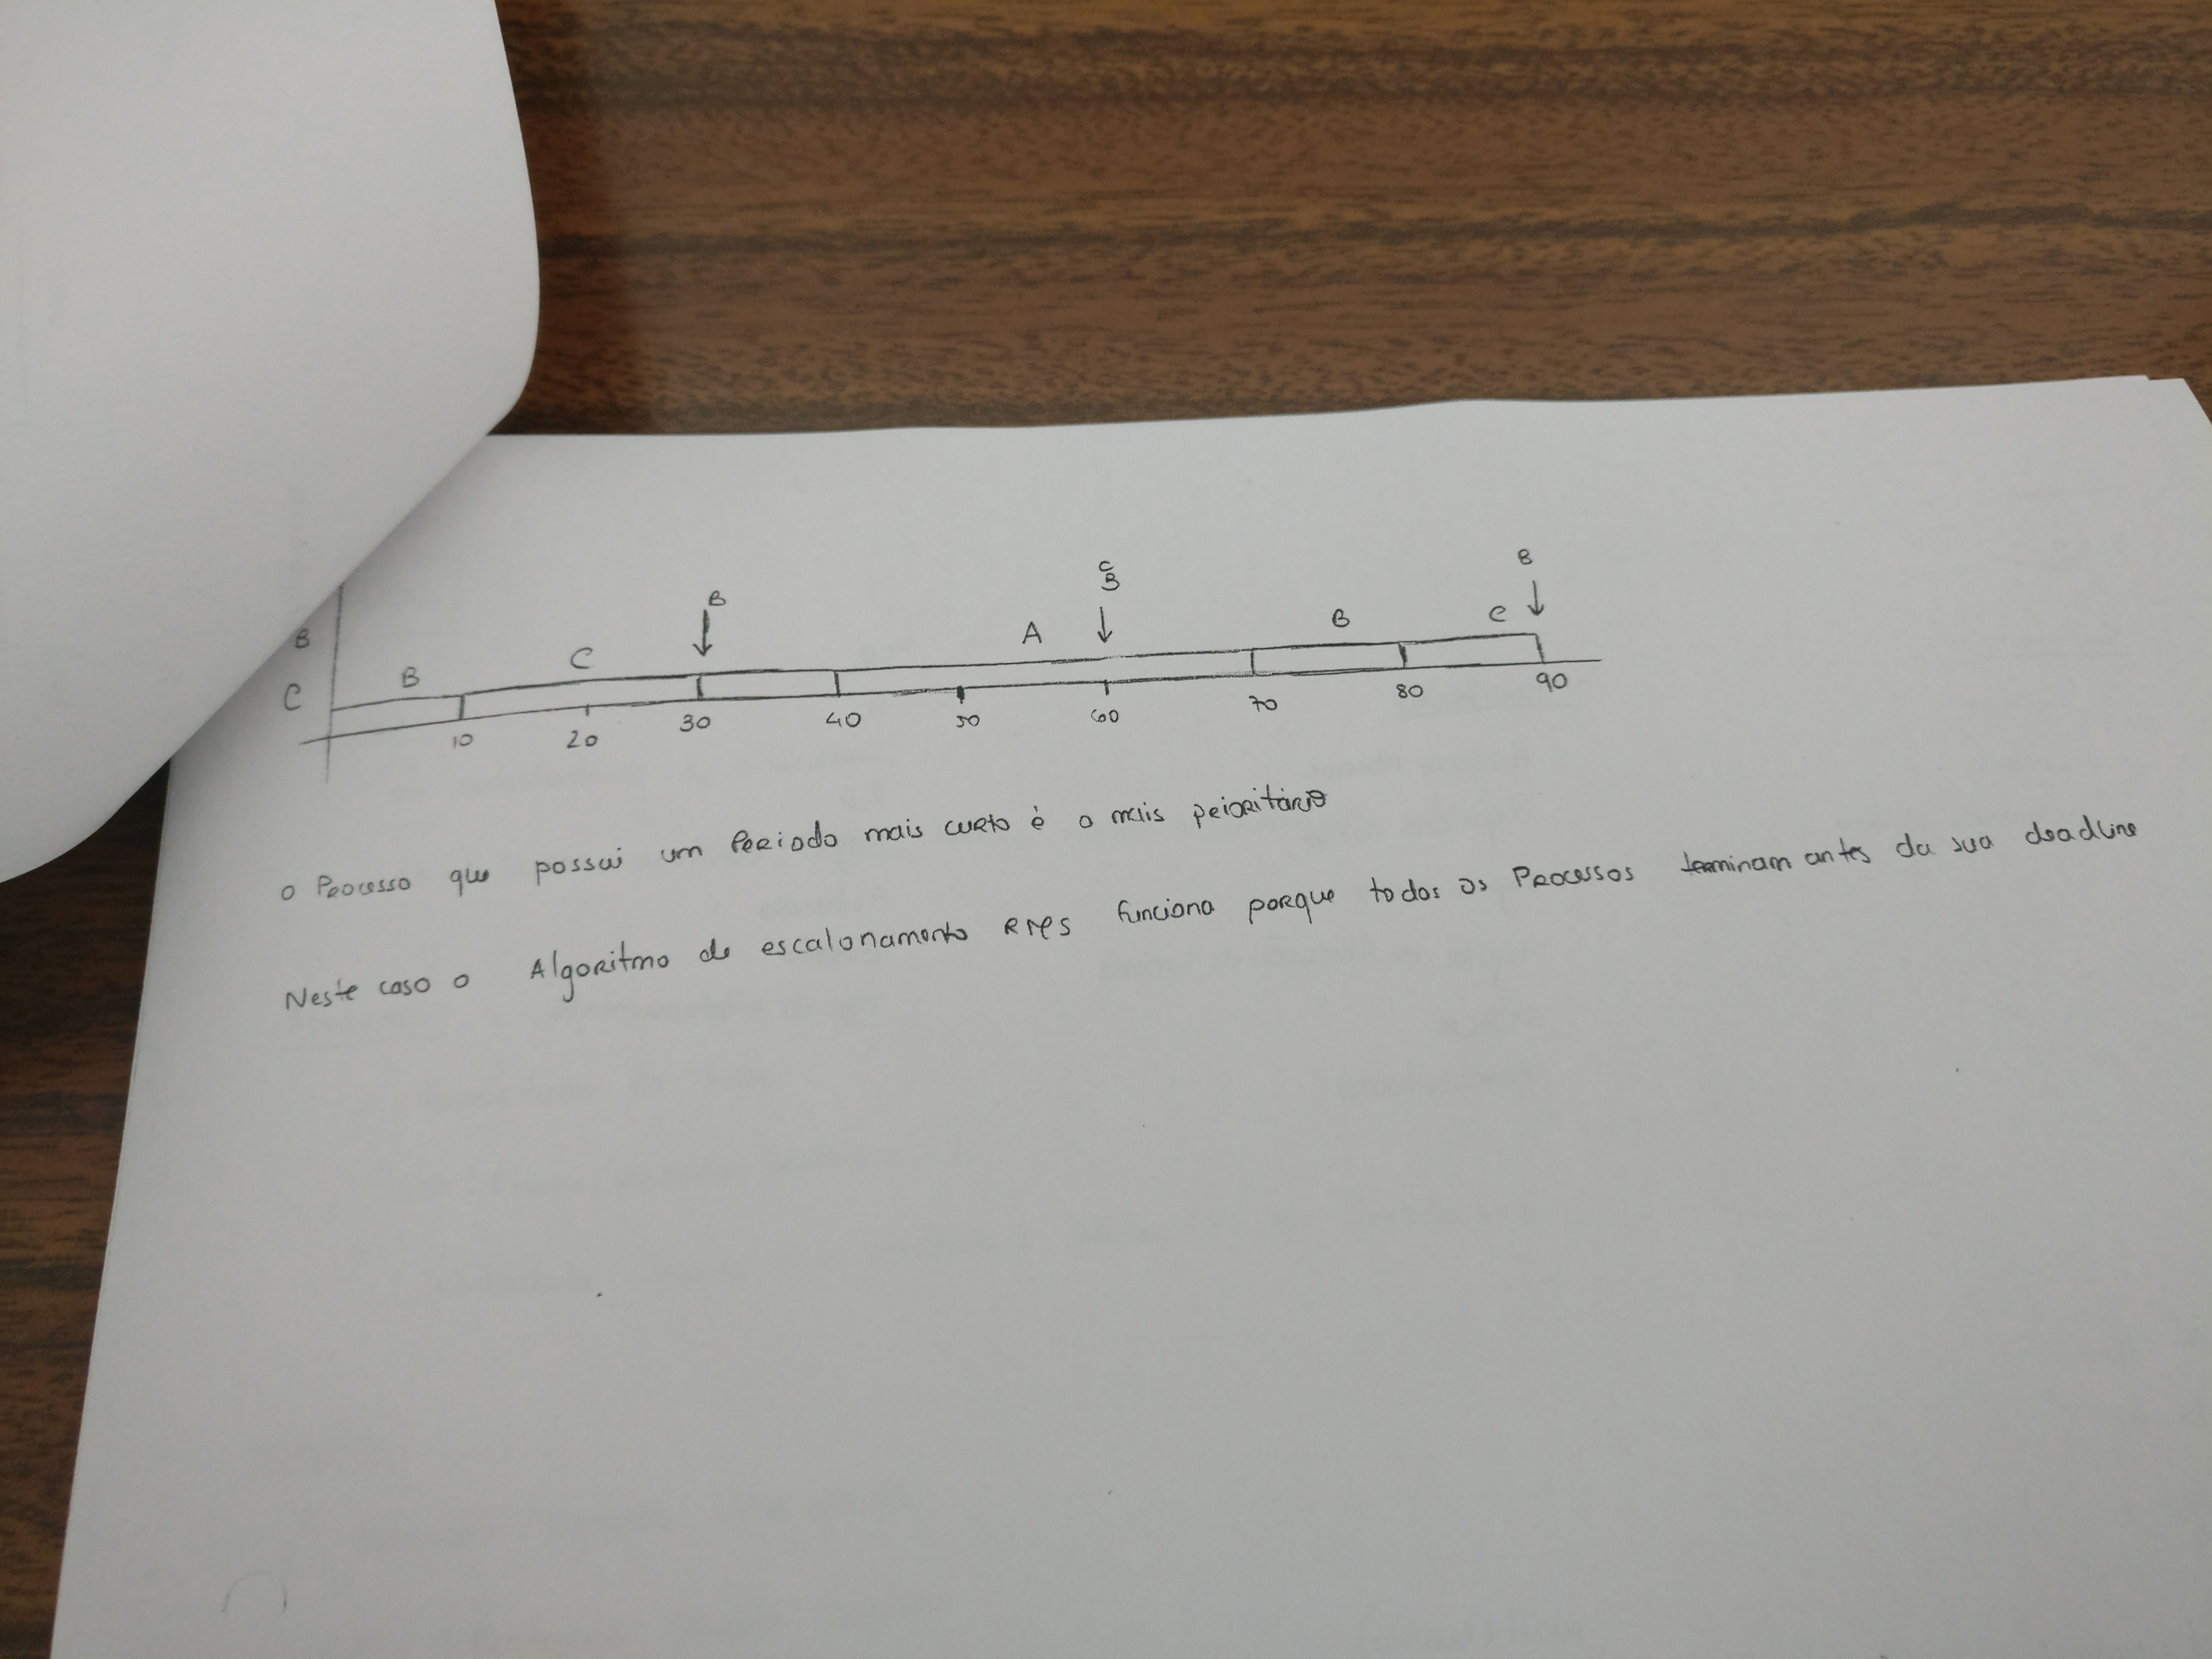 B
C B
B
C
B C A B C
B
C
10 20 30 40 50 60 70 80 90
O Processo que possui um Periodo mais curto é o mais prioritário
Neste caso o Algoritmo de escalonamento RMS funciona porque todos os Processos terminam antes da sua deadline